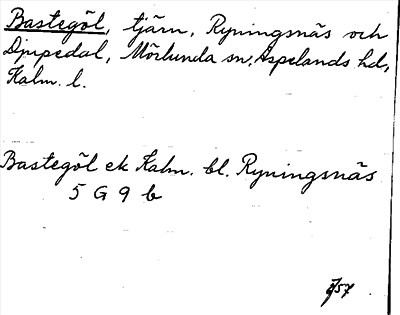 Bastegöl, tjärn, Ryningsnäs och
Djupedal, Mörlunda sn, Aspelands hd,
Kalm. l.
Bastegöl ek Kalm. bl. Ryningsnäs
5 G 9 b